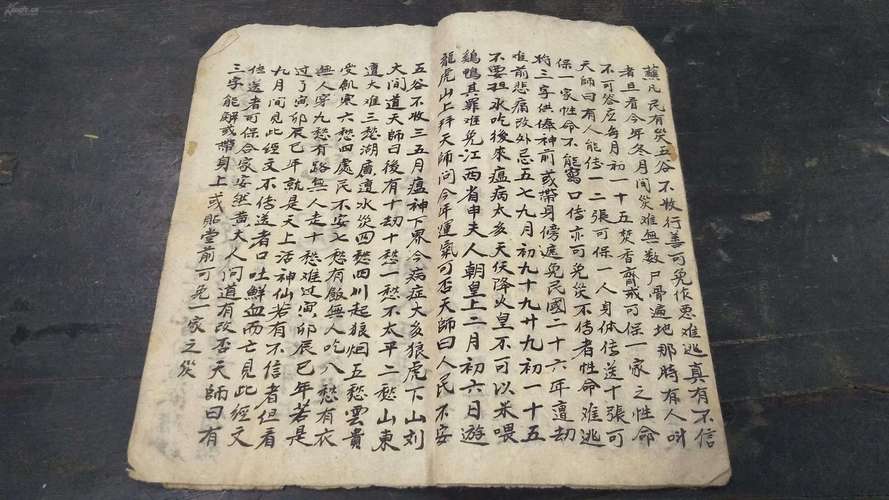 蘇凡民有災五谷不收行善可免作悪难逃真有不信
者旦看今年冬月间災难無数尸骨遍地那時有人叫
不可答应每月初一十五焚香齋戒可保一家之性命
天師曰有人能传一二張可保一人身体传送十張可
保一家性命不能寫口传亦可免災不传者性命难逃
将三字供俸神前或带身傍遮免民國二十六年遭劫
唯前悲痛改外忌五七九月初九十九廿九初一十五
不要担水吃後來瘟病太多天使降火皇不可以米喂
鷄鴨其罪难免江西省申夫人朝皇上二月初六日遊
龍虎山上拜天師问今年運氣可否天師曰人民不安
五谷不收三五月瘟神下界今病症大多狼虎下山刘
大间道天師曰後有十劫十愁一愁不太平二愁山東
遭大难三愁湖廣遭水災四愁四川起狼烟五愁雲貴
受飢寒六愁四處民不安七愁有飯無人吃八愁有衣
無人穿九愁有路無人走十愁难过寅卯辰巳年若是
过了寅卯辰巳年就是天上活神仙若有不信者但看
九月间見此經文不传送者口吐鲜血而亡見此經文
传送者可保合家安然黄夫人问道有改否天師曰有
三字能解或带身上或贴堂前可免一家之災